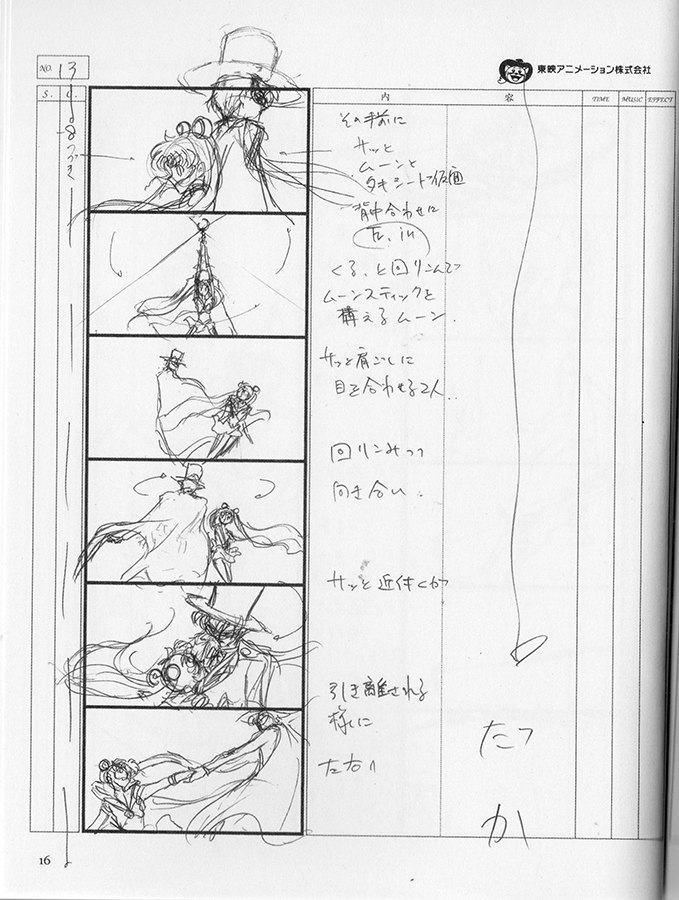 NO. 13
東映アニメーション株式会社
S. C. 内容 TIME MUSIC EFFECT
8
つづき
その様に
サッと
ムーンと
タキシード仮面
背中合わせに
Fr. in
くるっと回りこんで
ムーンスティックを
構えるムーン.
サッと肩ごしに
目を合わせる2人..
回りこみつつ
向き合い.
サッと近付くが
引き離される
様に
左右へ
16